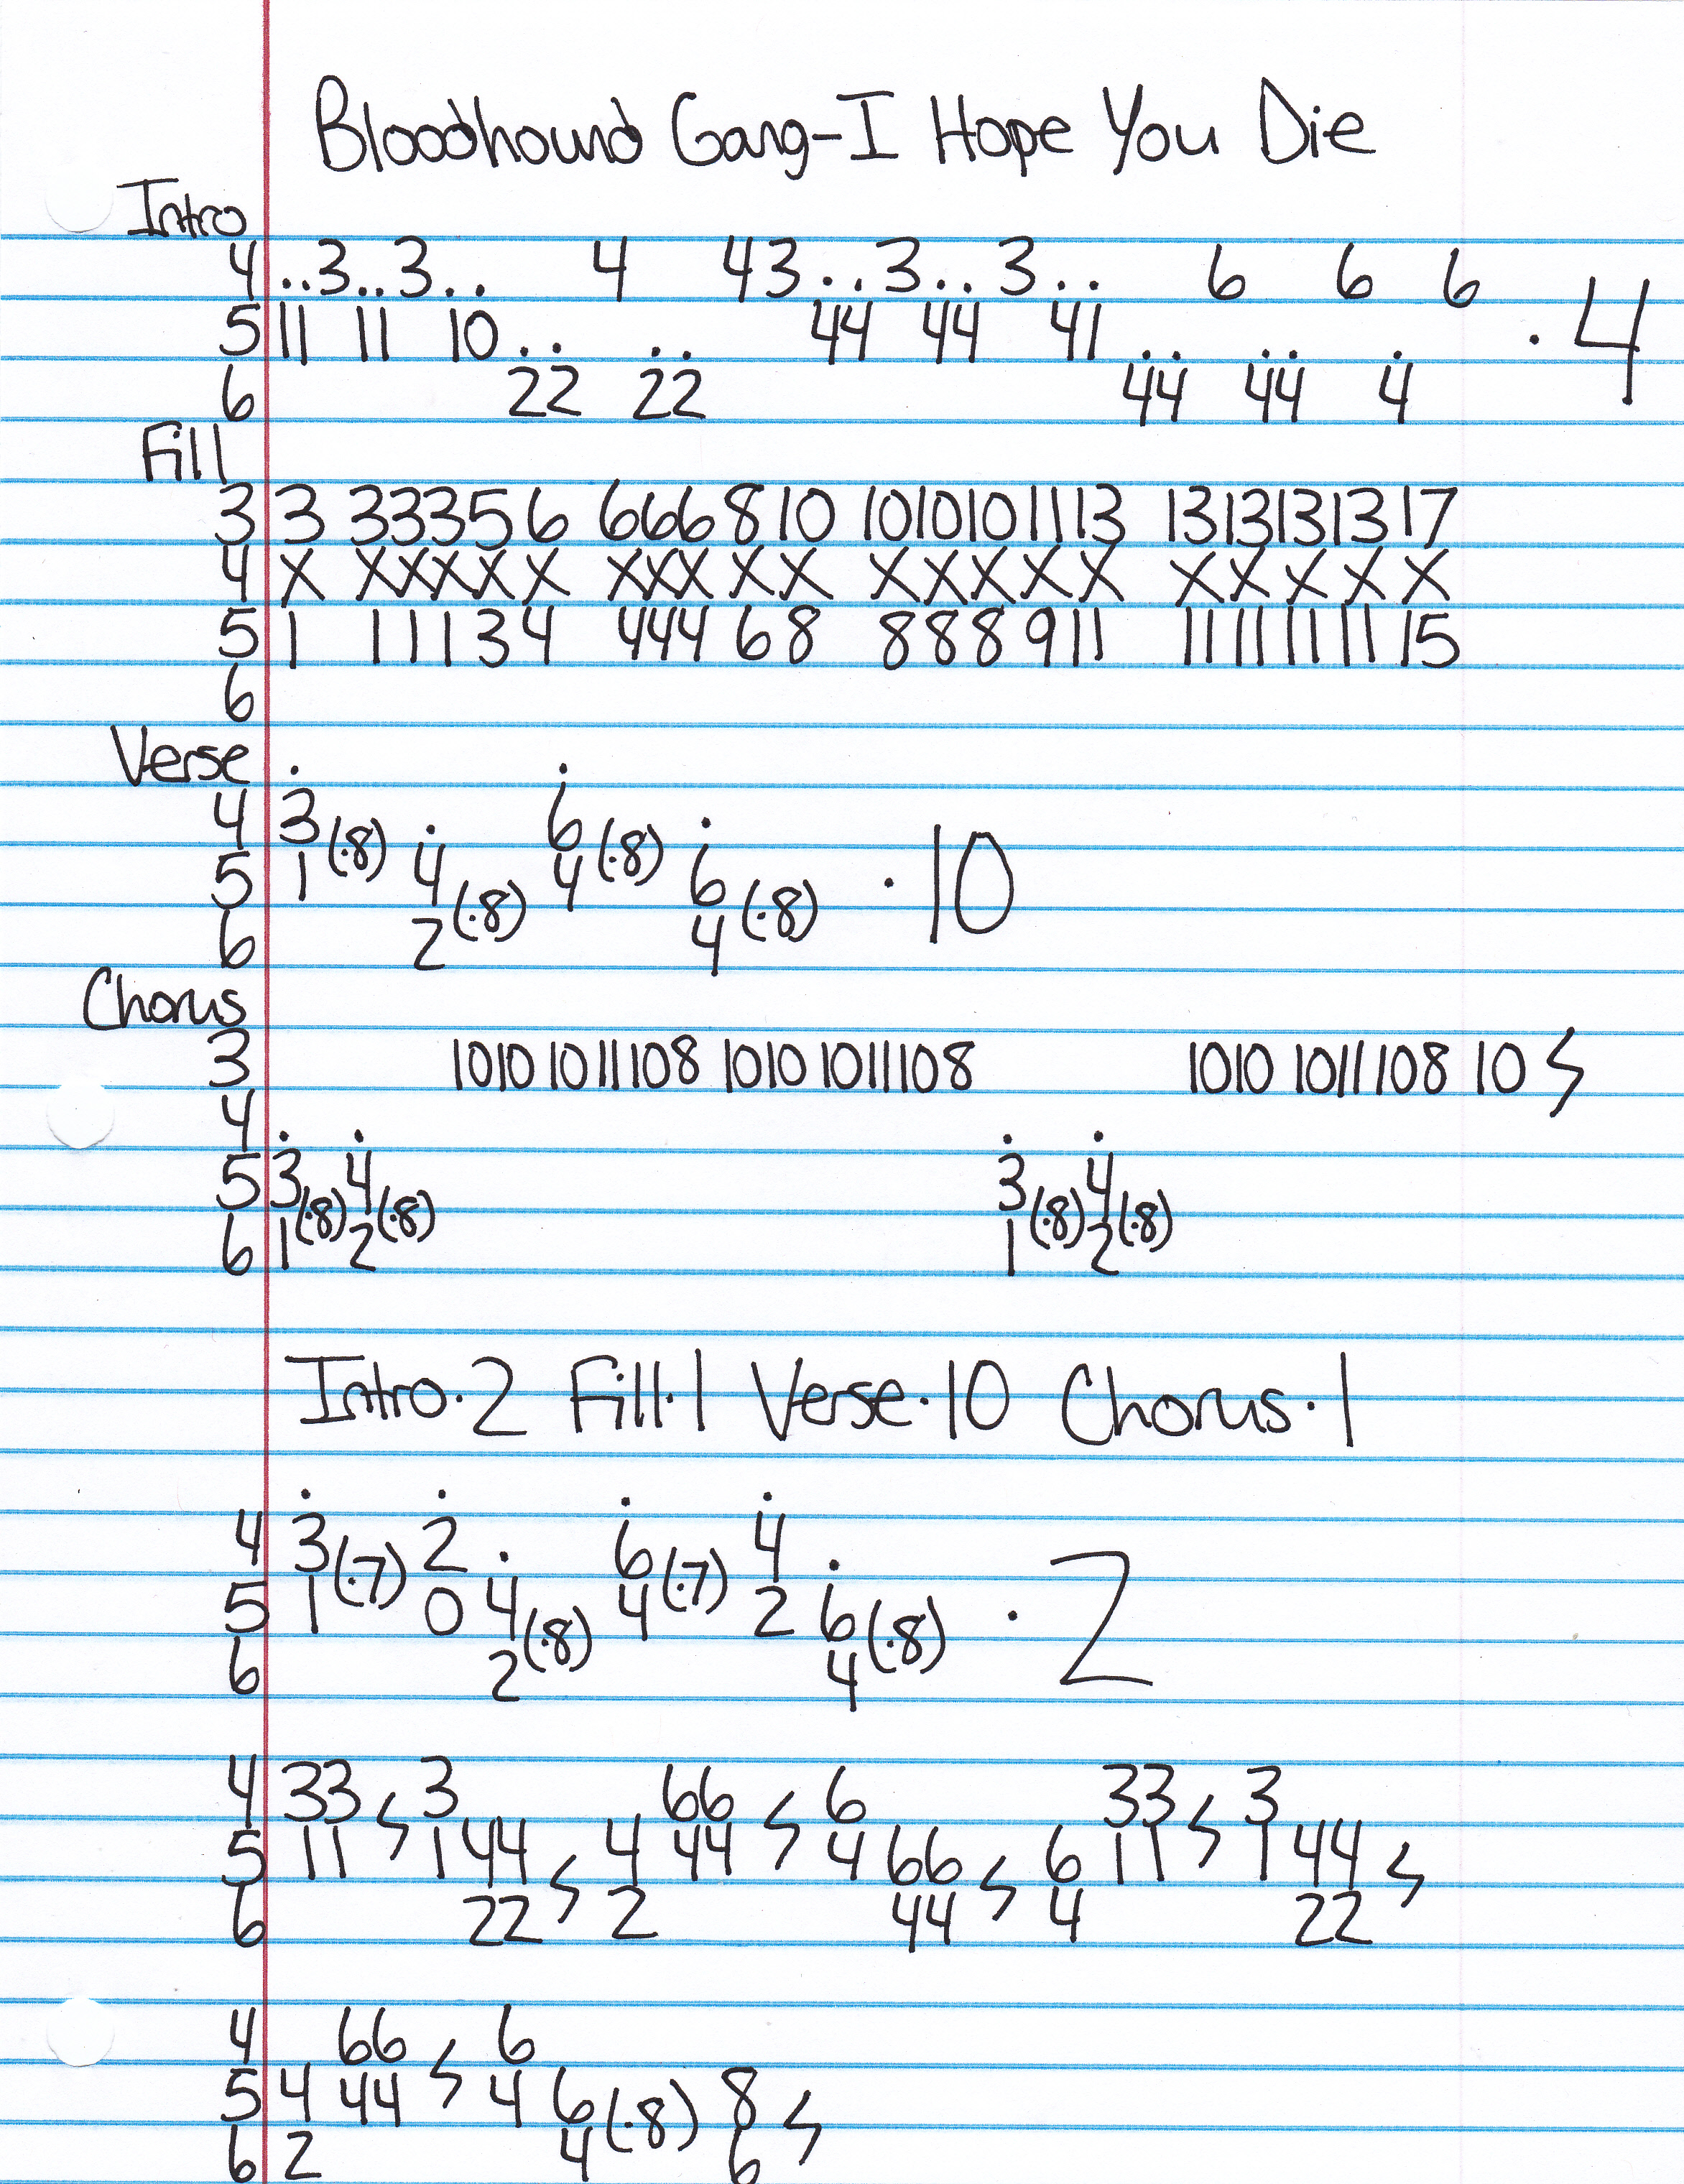 Bloodhound Gang-I Hope You Die
Intro
4 ..3..3.. 4 43..3..3.. 6 6 6
5 11 11 10.. .. 44 44 41 .. .. . · 4
6 22 22 44 44 4
Fill
3 3 33356 666810 1010101113 1313131317
4 x xxxxx xxxxx xxxxx xxxxx
5 1 11134 44468 888911 1111111115
6
Verse . .
4 3 (·8) . 6 (·8) .
5 1 4 (·8) 4 6 (·8) · 10
6 2 4
Chorus
3 1010 1011108 1010 1011108 1010 1011108 10
4 . . . .
5 3 (·8) 4 (·8) 3 (·8) 4 (·8)
6 1 2 1 2
Intro·2 Fill·1 Verse·10 Chorus·1
. . . .
4 3 (·7) 2 . 6 (·7) 4 .
5 1 0 4 (·8) 4 2 6 (·8) · 2
6 2 4
4 33 3 66 6 33 3
5 11 144 4 44 4 66 6 11 1 44
6 22 2 44 4 22
4 66 6
5 4 44 4 6 (·8) 8
6 2 4 6